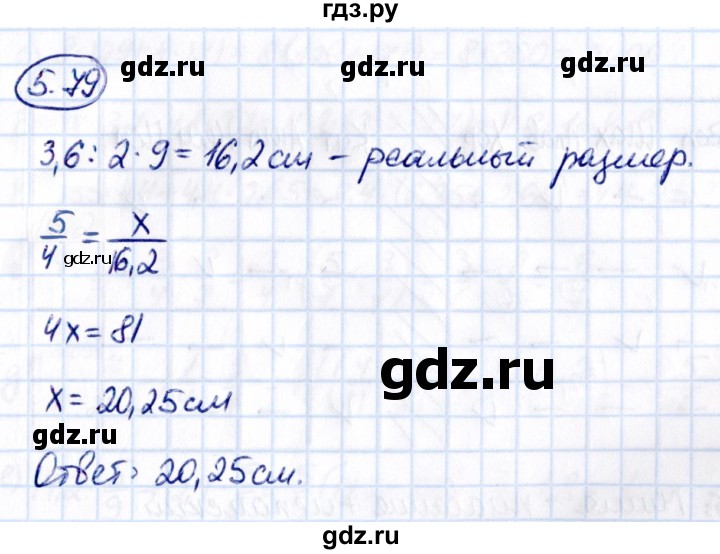 гдз.ру
gdz.ru gdz.ru
5.79
3,6 : 2 · 9 = 16,2 см – реальный размер.
5/4 = x/16,2
gdz.ru
4x = 81
gdz.ru
x = 20,25 см
gdz.ru
Ответ: 20,25 см.
gdz.ru gdz.ru
gdz.ru